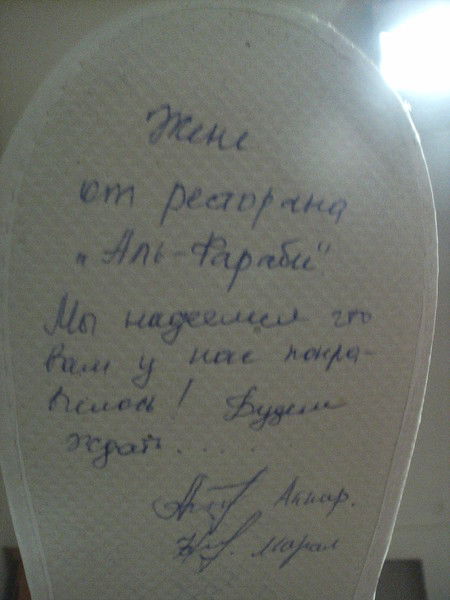 Жене
от ресторана
"Аль-Фараби"
Мы надеемся что
вам у нас понра-
вилось! Будем
ждать.....
Марал